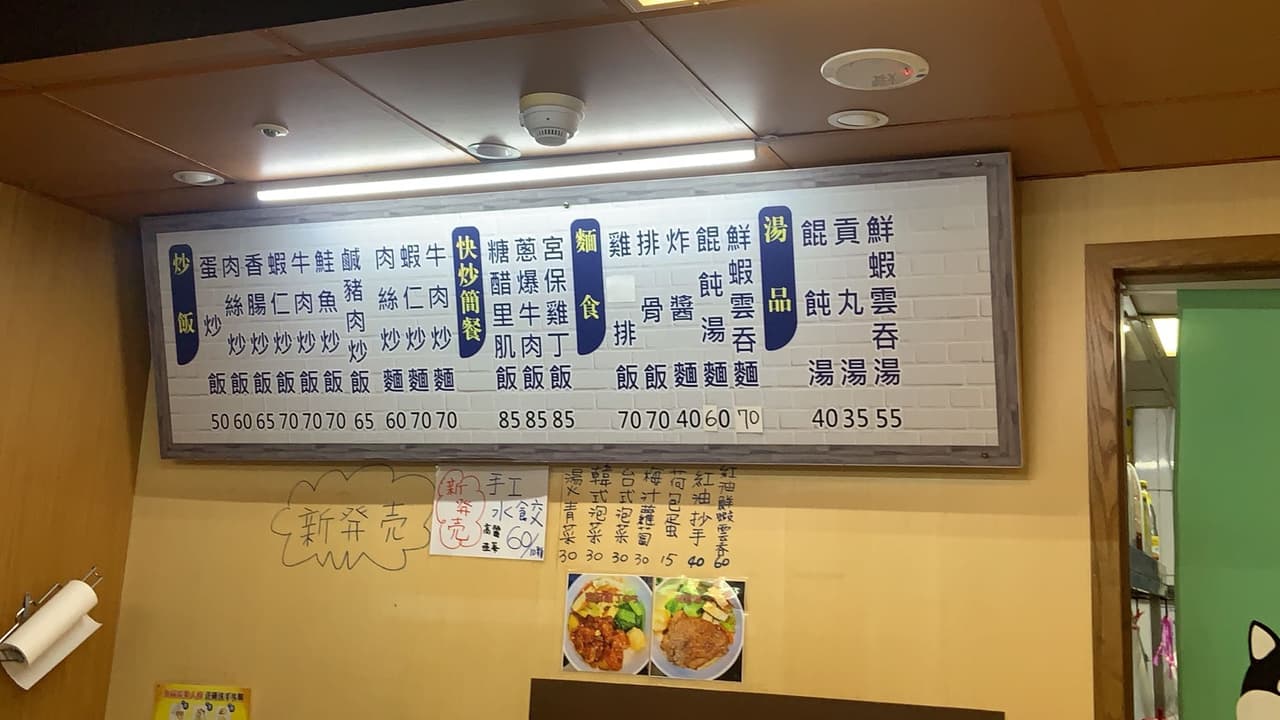 炒飯
蛋炒飯 50
肉絲炒飯 60
香腸炒飯 65
蝦仁炒飯 70
牛肉炒飯 70
鮭魚炒飯 70
鹹豬肉炒飯 65
肉絲炒麵 60
蝦仁炒麵 70
牛肉炒麵 70
快炒簡餐
糖醋里肌飯 85
蔥爆牛肉飯 85
宮保雞丁飯 85
麵食
雞排飯 70
排骨飯 70
炸醬麵 40
餛飩湯麵 60
鮮蝦雲吞麵 70
湯品
餛飩湯 40
貢丸湯 35
鮮蝦雲吞湯 55
新発売
新発売
手工
水餃
高麗
韭菜
60/10顆
燙青菜 30
韓式泡菜 30
台式泡菜 30
梅汁蘿蔔 30
荷包蛋 15
紅油抄手 40
紅油鮮蝦雲吞 60